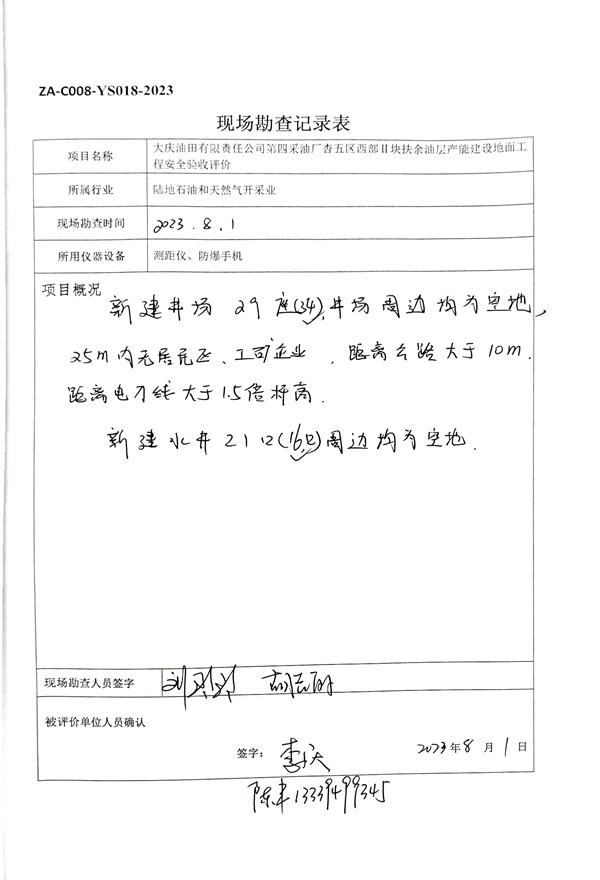 ZA-C008-YS018-2023
现场勘查记录表
项目名称
大庆油田有限责任公司第四采油厂杏五区西部Ⅱ块扶余油层产能建设地面工
程安全验收评价
所属行业
陆地石油和天然气开采业
现场勘查时间
2023.8.1
所用仪器设备
测距仪、防爆手机
项目概况
新建井场29座(34),井场周边均为空地,
25m内无居民区、工矿企业,距离公路大于10m,
距离电力线大于1.5倍杆高.
新建水井21口(16)周边均为空地.
现场勘查人员签字
被评价单位人员确认
签字:
2023年8月1日
13339499345